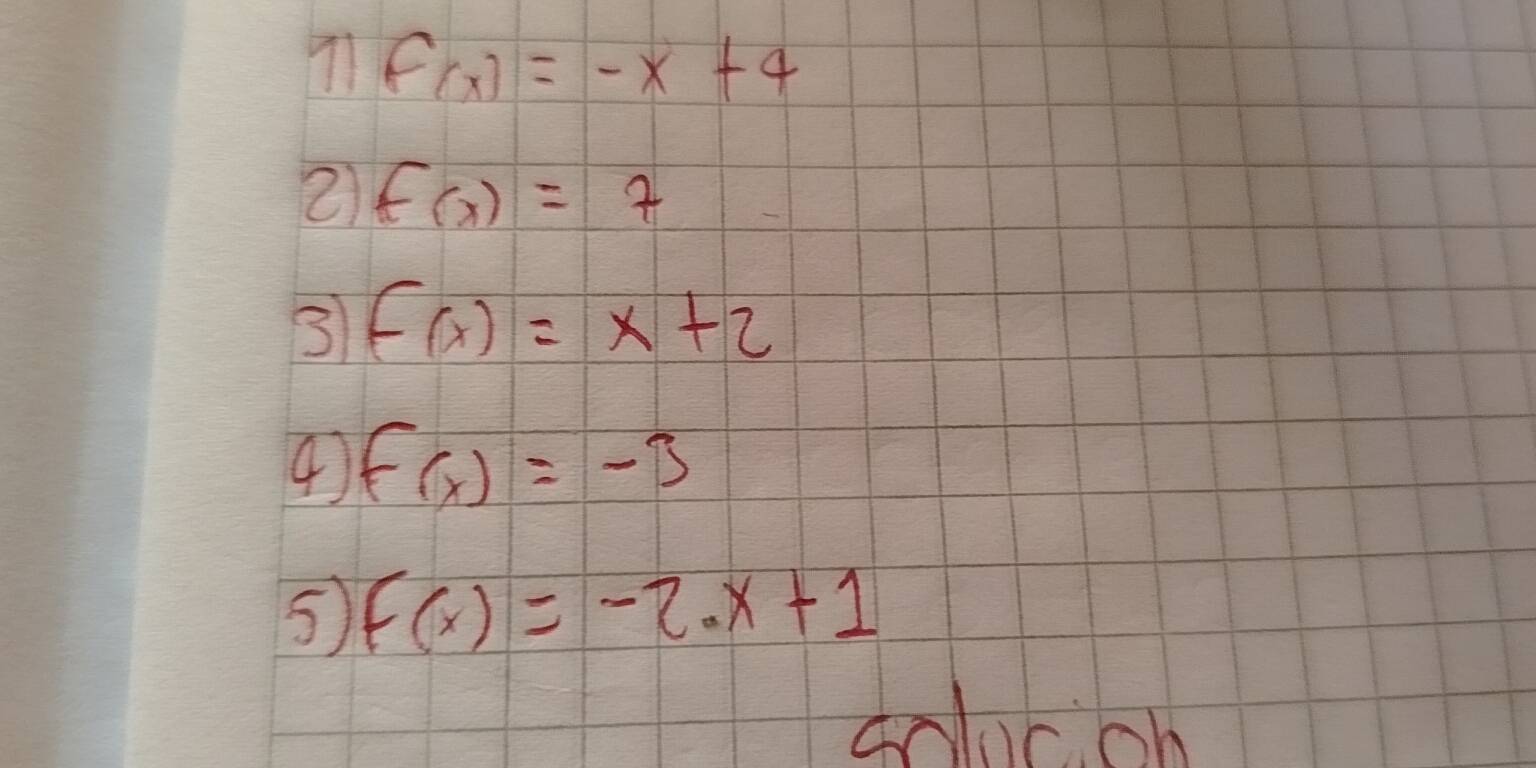 1) f(x) = -x + 4
2) f(x) = 7
3) f(x) = x + 2
4) f(x) = -3
5) f(x) = -2.x + 1
solucion